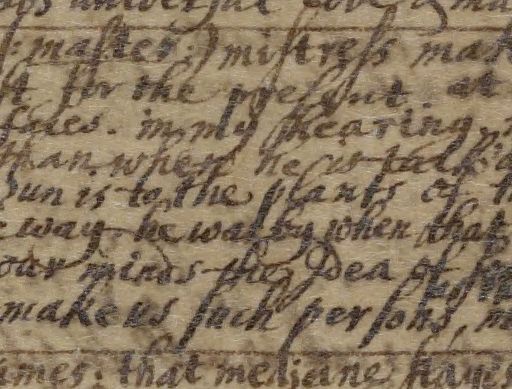 universal love &
: master: mistress mak
st for the present. at
ssues. in my hearing,
than when he is talk
Sun is to the plants of th
way he was by when that
our minds the Idea of
make us such persons, m
imes: that medicine stayes